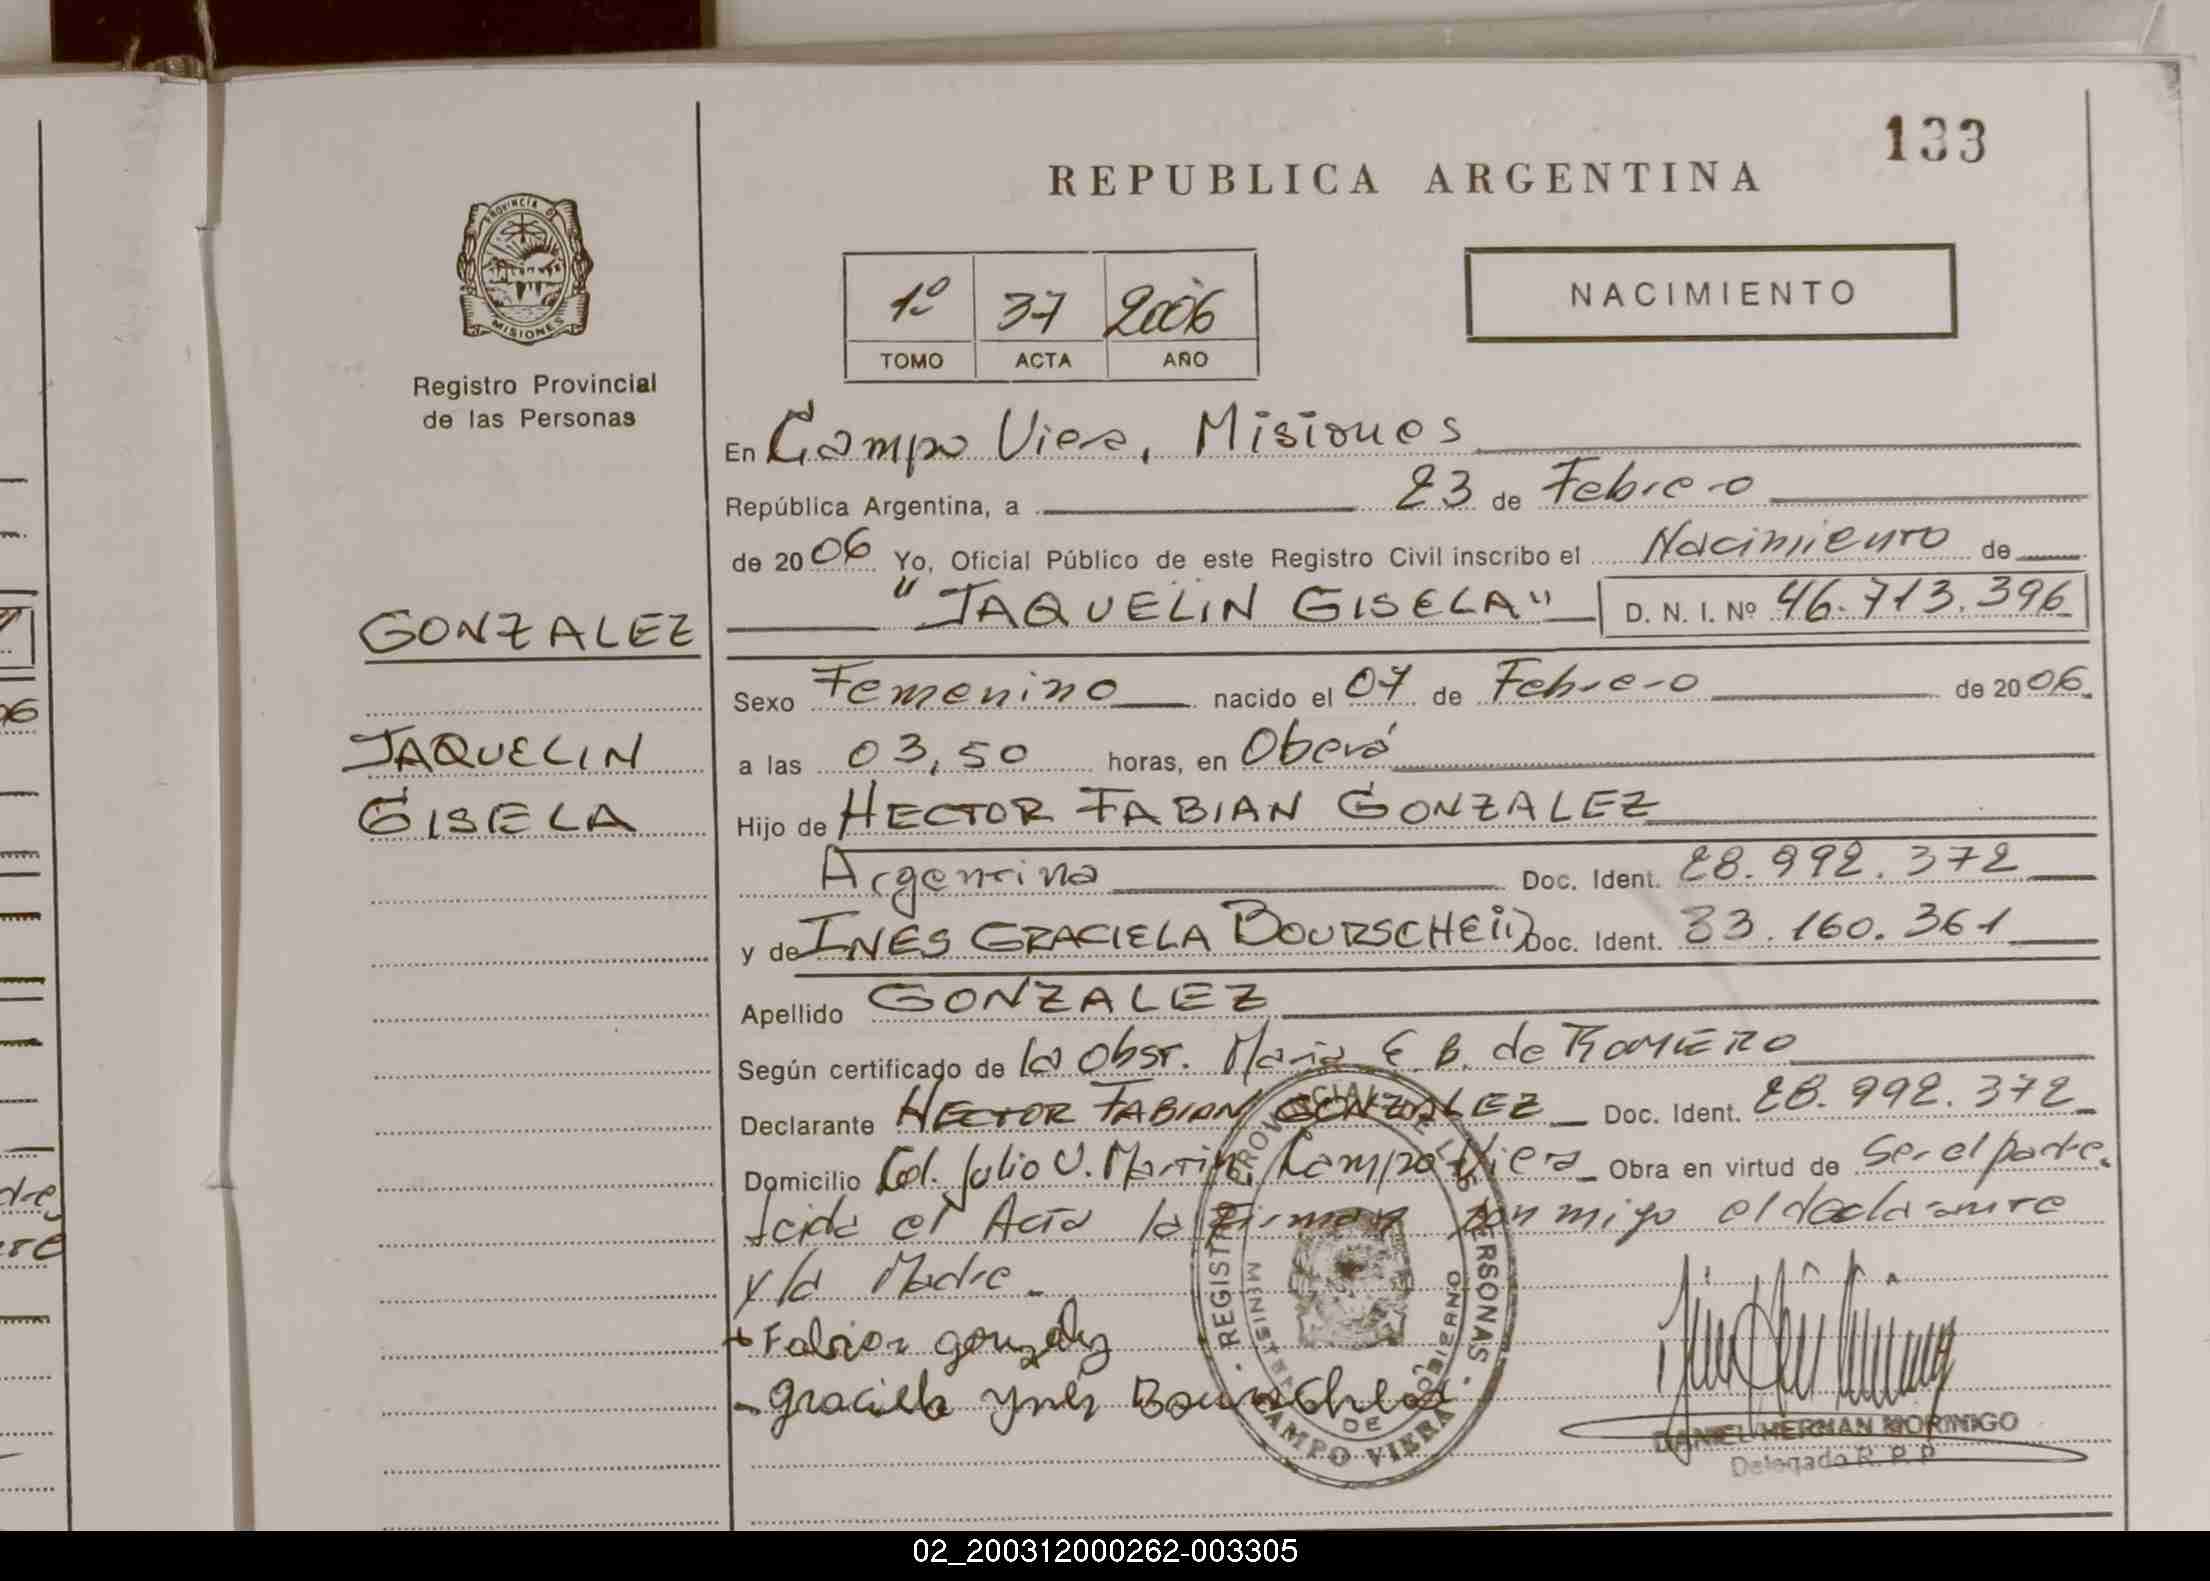 133
REPUBLICA ARGENTINA
PROVINCIA DE
MISIONES
Registro Provincial
de las Personas
1º 37 2006
TOMO ACTA AÑO
NACIMIENTO
En Campo Viera, Misiones
República Argentina, a 23 de Febrero
de 2006 Yo, Oficial Público de este Registro Civil inscribo el Nacimiento de
"JAQUELIN GISELA" D. N. I. Nº 46.713.396
GONZALEZ
JAQUELIN
GISELA
Sexo Femenino nacido el 07 de Febrero de 2006.
a las 03,50 horas, en Oberá
Hijo de HECTOR FABIAN GONZALEZ
Argentina Doc. Ident. 28.992.372
y de INES GRACIELA BOURSCHEID Doc. Ident. 33.160.361
Apellido GONZALEZ
Según certificado de la Obst. Maria E. B. de ROMERO
Declarante HECTOR FABIAN GONZALEZ Doc. Ident. 28.992.372
Domicilio Col. Julio U. Martin, Campo Viera Obra en virtud de Ser el padre.
Leida el Acta la firman conmigo el declarante
y la Madre.
Fabian gonzalez
graciela ynés Bourscheid
REGISTRO PROVINCIAL DE LAS PERSONAS
MINISTERIO DE GOBIERNO
CAMPO VIERA
DANIEL HERNAN MORINIGO
Delegado R. P. P.
02_200312000262-003305